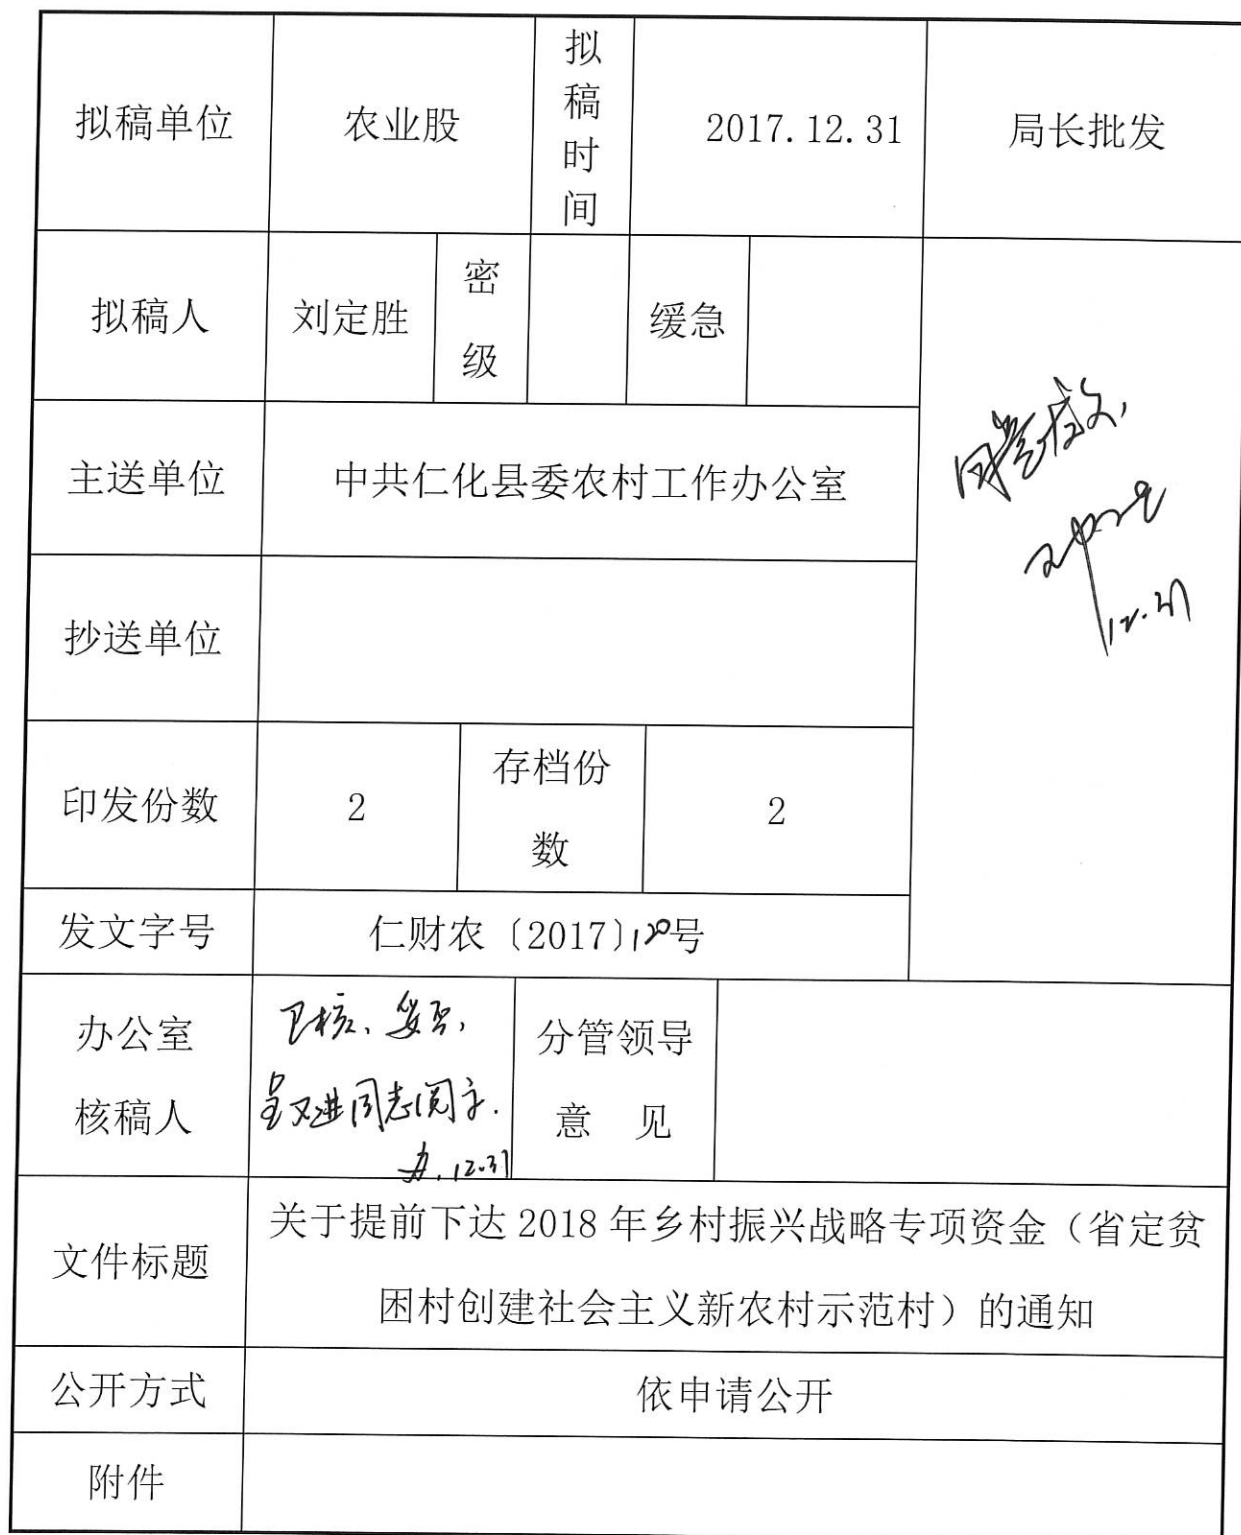 拟稿单位
农业股
拟
稿
时
间
2017.12.31
局长批发
拟稿人
刘定胜
密
级
缓急
同意发文,
12.31
主送单位
中共仁化县委农村工作办公室
抄送单位
印发份数
2
存档份
数
2
发文字号
仁财农〔2017〕120号
办公室
核稿人
已核、妥否,
呈又进同志阅示.
12.31
分管领导
意 见
文件标题
关于提前下达 2018 年乡村振兴战略专项资金（省定贫
困村创建社会主义新农村示范村）的通知
公开方式
依申请公开
附件